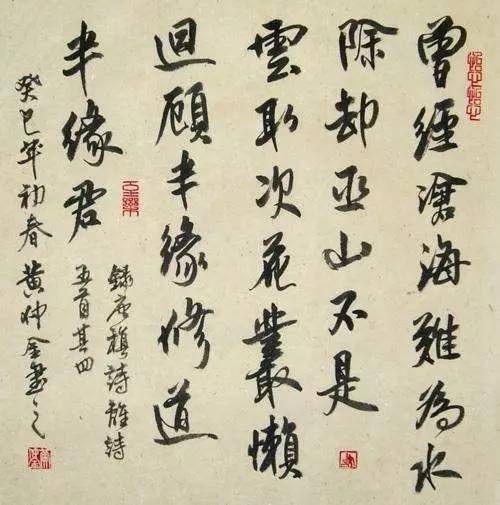 曾經滄海難為水
除却巫山不是
雲取次花叢懶
迴顧半緣修道
半緣君
錄唐稹詩離詩
五首其四
癸巳年初春黃仲金書之